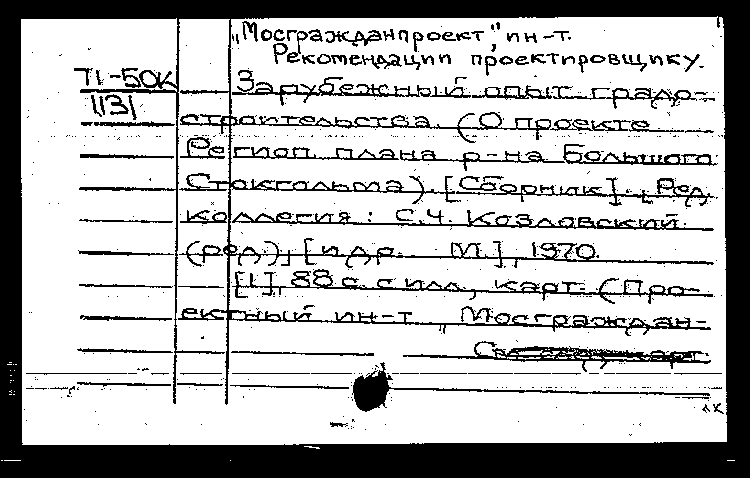 „Мосгражданпроект", ин-т.
Рекомендации проектировщику.
71-50К
1131
Зарубежный опыт градо-
строительства. (О проекте
Регион. плана р-на Большого
Стокгольма). [Сборник]. [Ред.
коллегия: С.Ч. Козловский
(ред.)] [и др. М.], 1970.
[1], 88 с. с илл., карт. (Про-
ектный ин-т „Мосграждан-
См. след. карт.